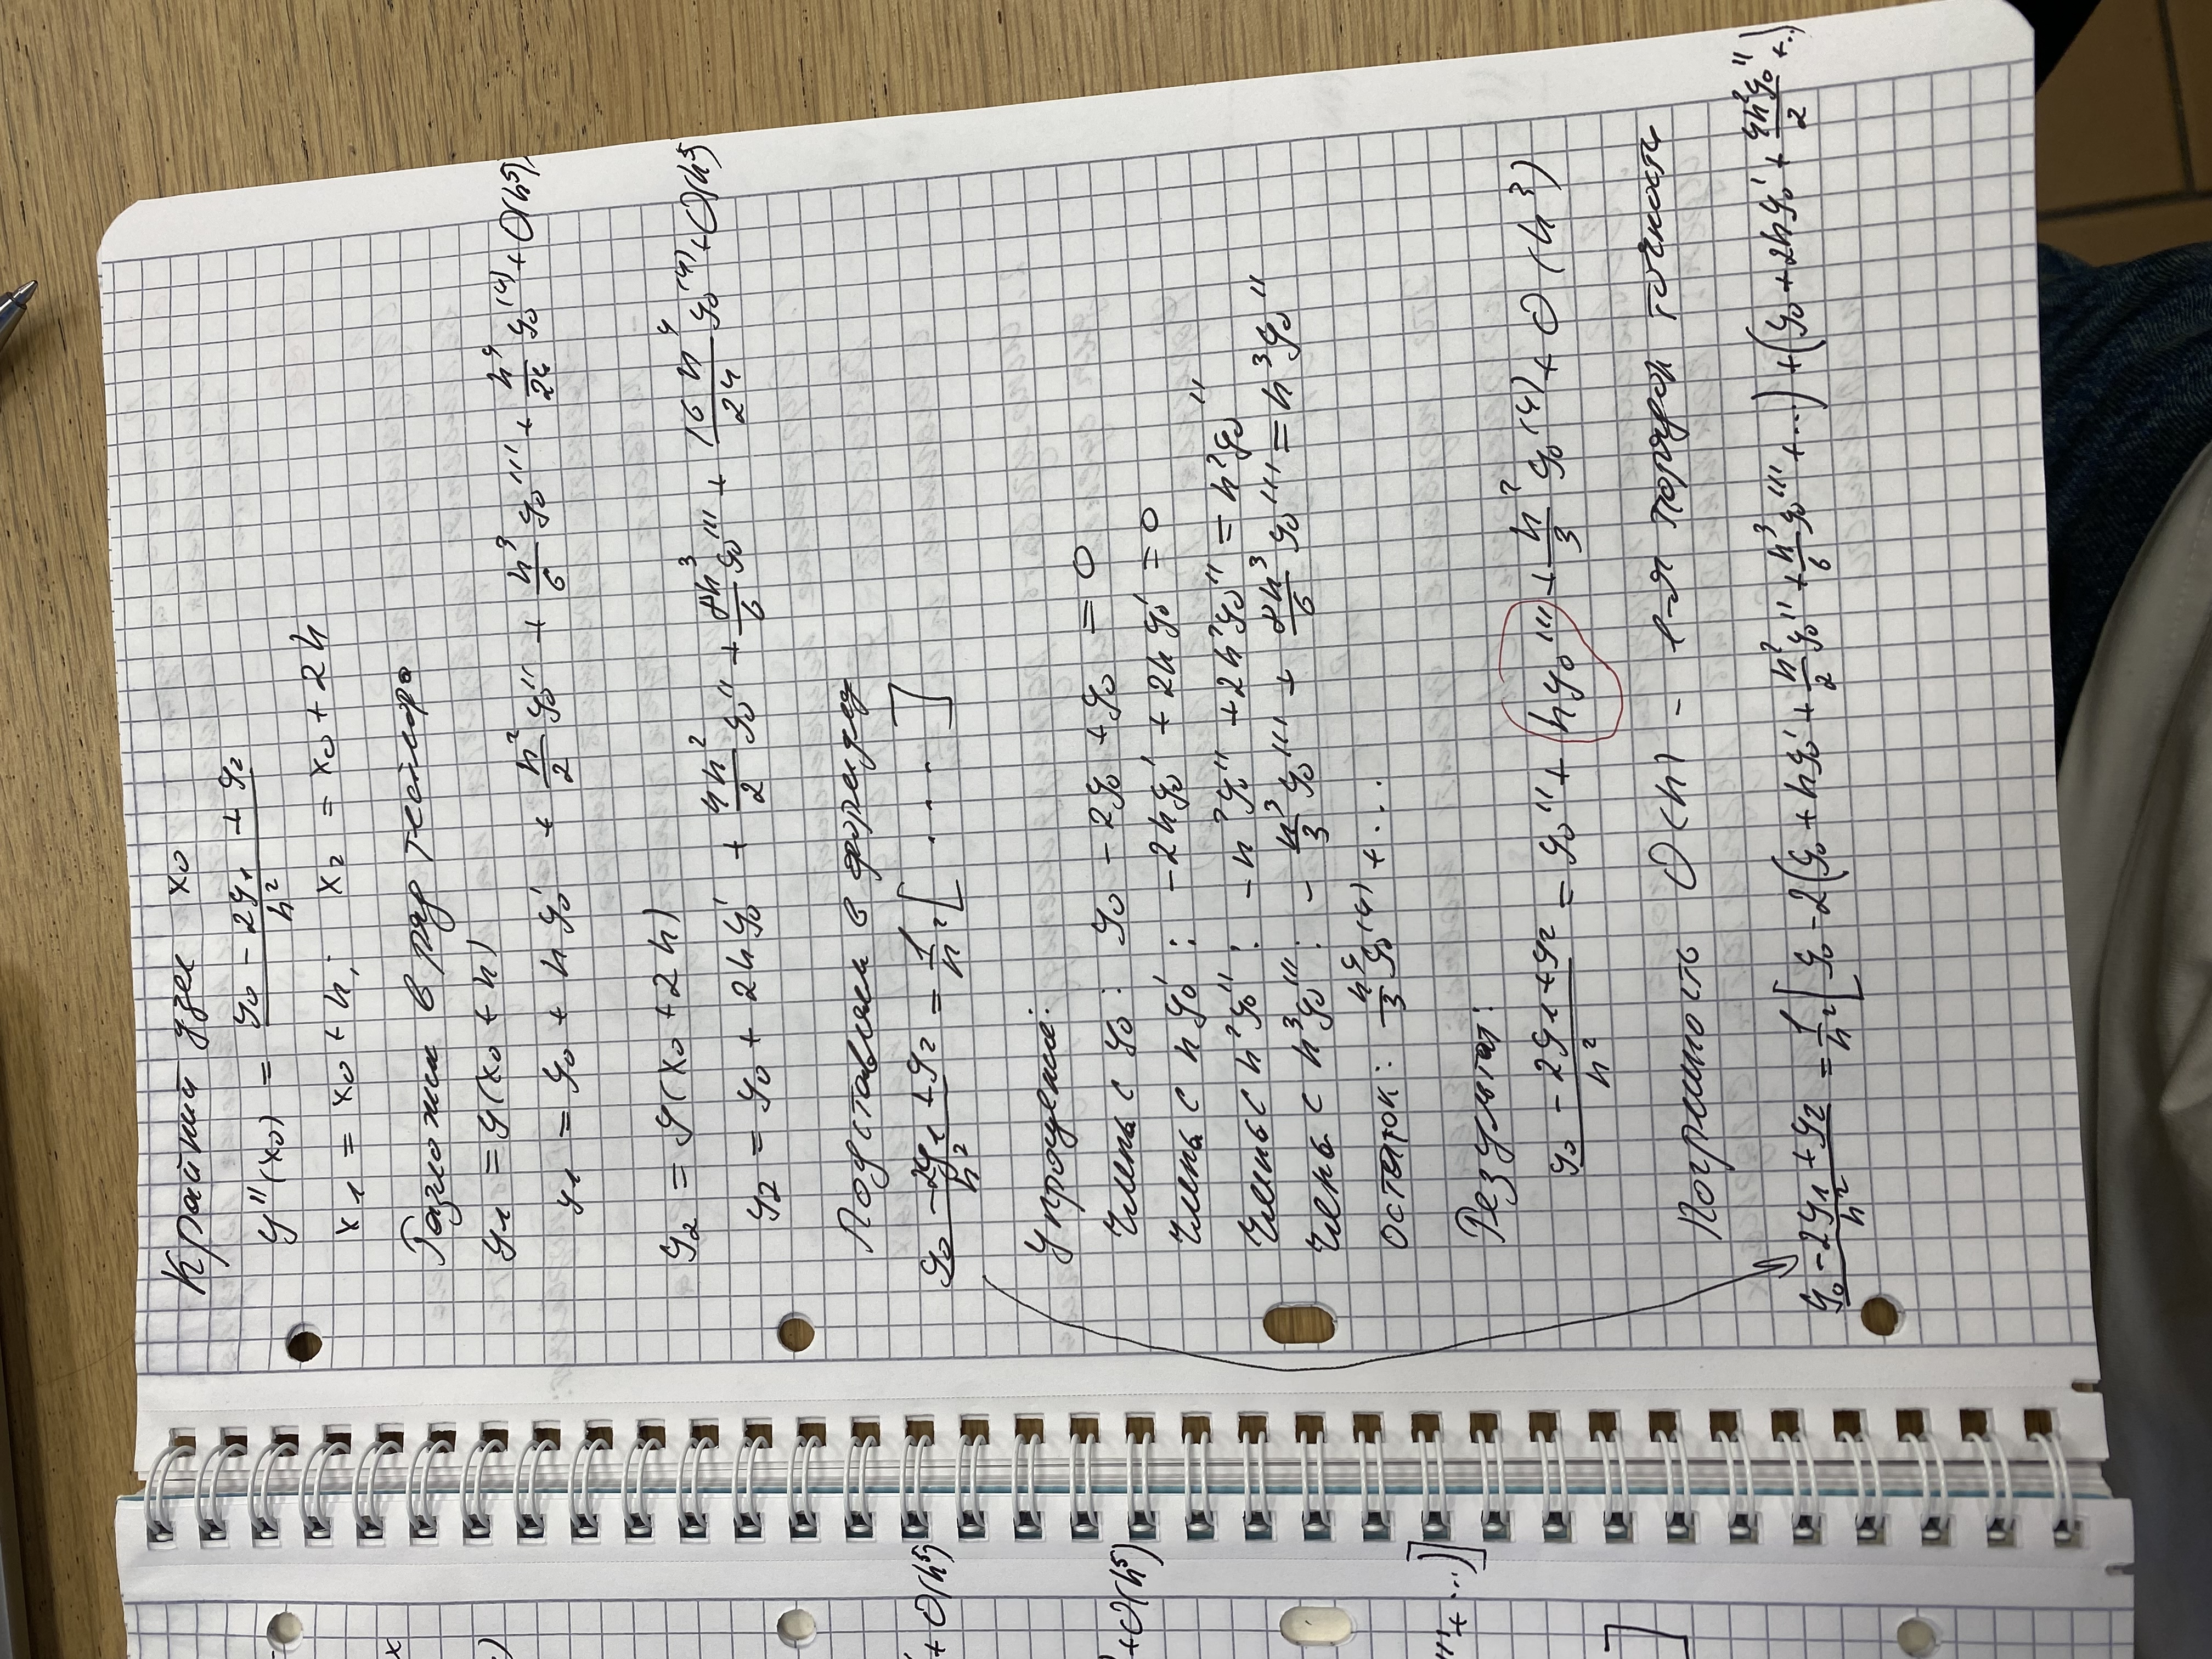 Крайний узел x₀
y''(x₀) = (y₀ - 2y₁ + y₂)/h²
x₁ = x₀ + h; x₂ = x₀ + 2h
Разложим в ряд Тейлора
y₁ = y(x₀ + h)
y₁ = y₀ + hy₀' + h²/2 y₀'' + h³/6 y₀''' + h⁴/24 y₀⁽⁴⁾ + O(h⁵)
y₂ = y(x₀ + 2h)
y₂ = y₀ + 2hy₀' + 4h²/2 y₀'' + 8h³/6 y₀''' + 16h⁴/24 y₀⁽⁴⁾ + O(h⁵)
Подставим в формулу
(y₀ - 2y₁ + y₂)/h² = 1/h² [ . . . ]
Упрощение:
Члены с y₀: y₀ - 2y₀ + y₀ = 0
Члены с hy₀': -2hy₀' + 2hy₀' = 0
Члены с h²y₀'': -h²y₀'' + 2h²y₀'' = h²y₀''
Члены с h³y₀''': - h³/3 y₀''' + 8h³/6 y₀''' = h³y₀''
остаток: h⁴/3 y₀⁽⁴⁾ + ...
Результат:
(y₀ - 2y₁ + y₂)/h² = y₀'' + hy₀''' + h²/3 y₀⁽⁴⁾ + O(h³)
Погрешность O(h) - 1-й порядок точности
(y₀ - 2y₁ + y₂)/h² = 1/h² [ y₀ - 2(y₀ + hy₀' + h²/2 y₀'' + h³/6 y₀''' + ...) + (y₀ + 2hy₀' + 4h²y₀''/2 + ..)
x
)
+ O(h⁵)
+ O(h⁵)
''' + ...)]
]